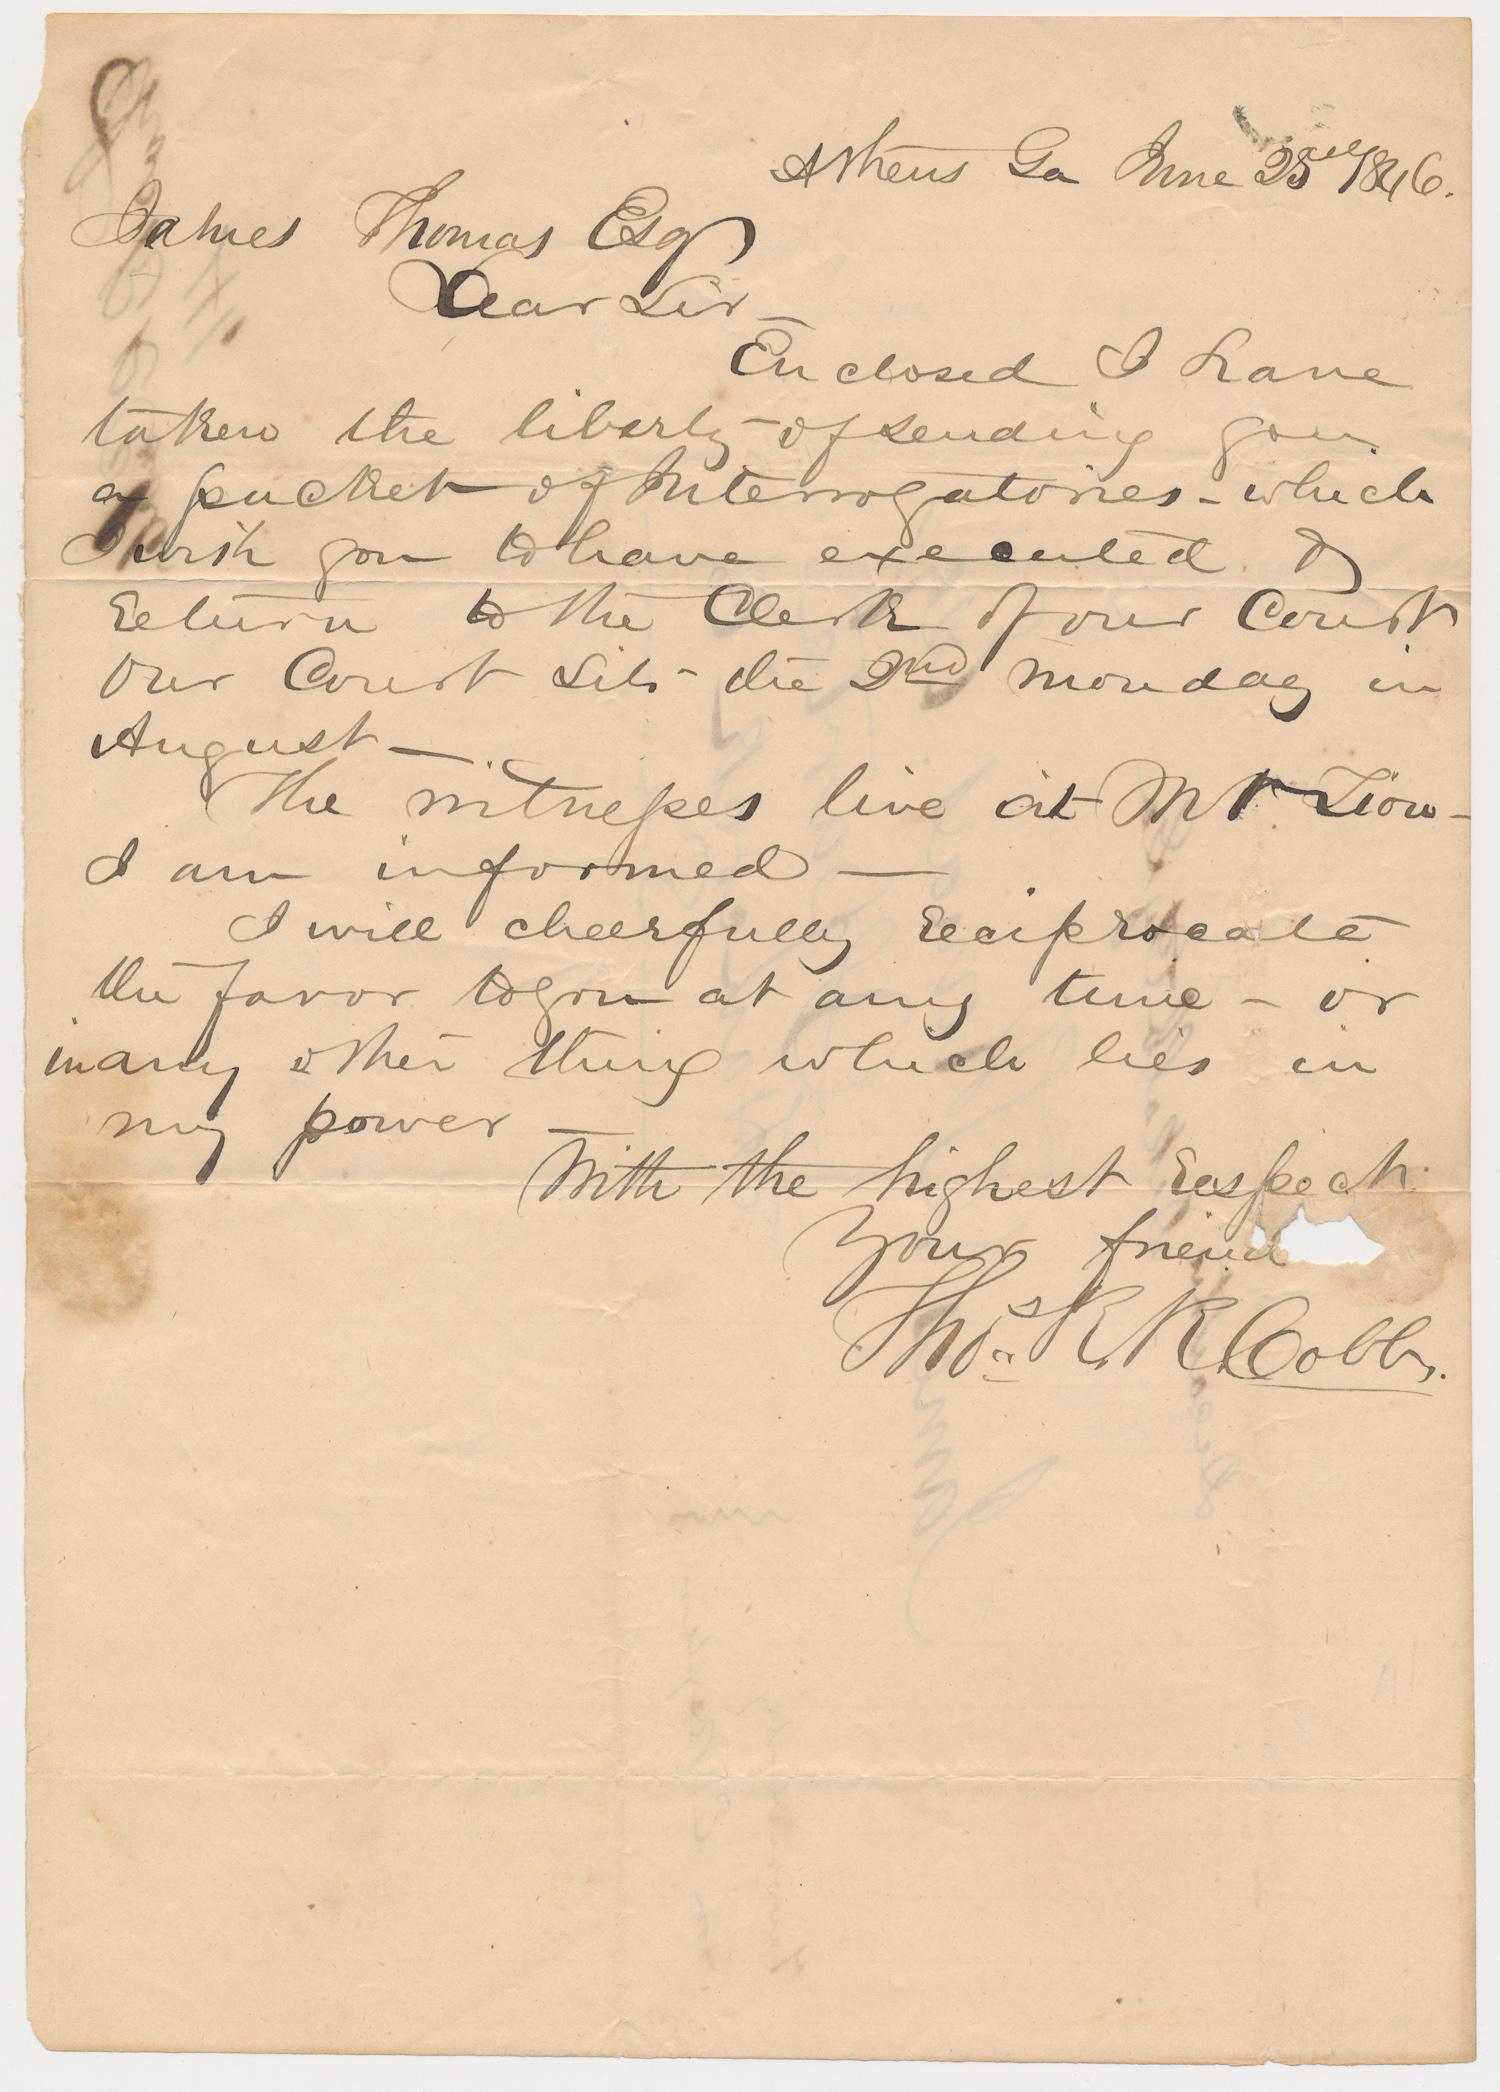 Athens Ga June 23rd 1846.
James Thomas Esqr
Dear Sir –
Enclosed I have
taken the liberty – of sending you
a packet of Interrogatories – which
I wish you to have executed &
return to the Clerk of our Court
Our Court sits – the 2nd Monday in
August —
The witnesses live at Mt Zion –
I am informed —
I will cheerfully reciprocate
the favor to you at any time – or
in any other thing which lies in
my power –
With the highest respect
Your friend
Thos. R. R. Cobb.